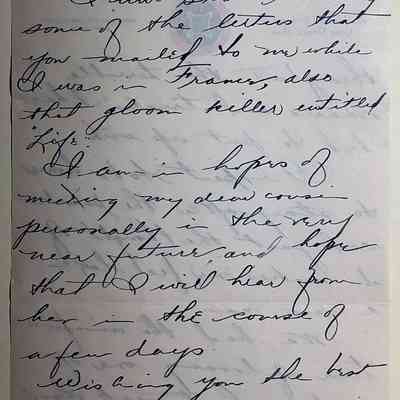 some of the letters that
you mailed to me while
I was in France, also
that gloom killer entitled
"Life."
I am in hopes of
meeting my dear cousin
personally in the very
near future, and hope
that I will hear from
her in the course of
a few days.
Wishing you the best